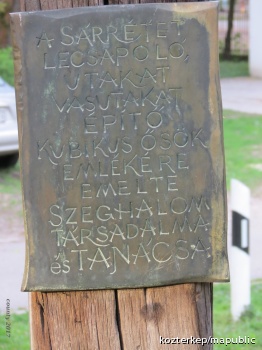 A SÁRRÉTET
LECSAPOLÓ,
UTAKAT
VASUTAKAT
ÉPÍTŐ
KUBIKUS ŐSÖK
EMLÉKÉRE
EMELTE
SZEGHALOM
TÁRSADALMA
és TANÁCSA
kozterkep/mapublic